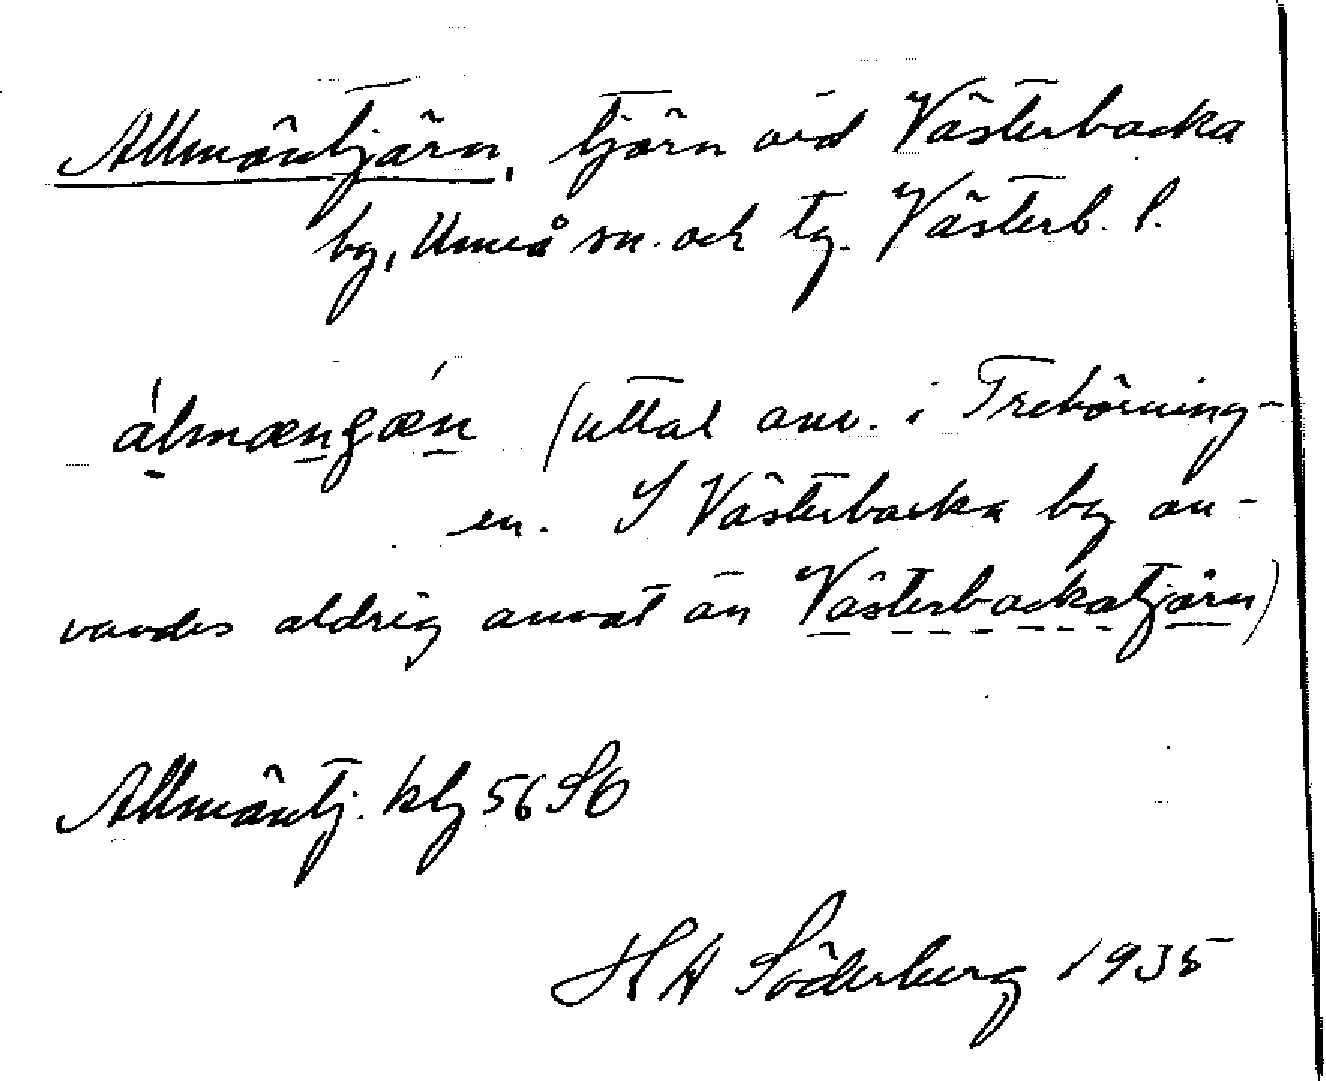 Allmäntjärn, tjärn vid Västerbacka
by, Umeå sn. och tg. Västerb. l.
álmængǽn (uttal anv. i Trehörning-
en. I Västerbacka by an-
vändes aldrig annat än Västerbackatjärn)
Allmäntj. kbl 56 S6
HA Söderberg 1935